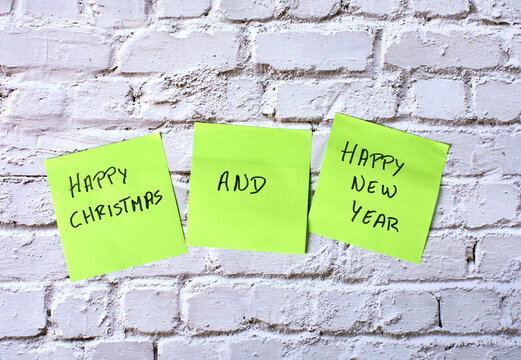 HAPPY
CHRISTMAS
AND
HAPPY
NEW
YEAR